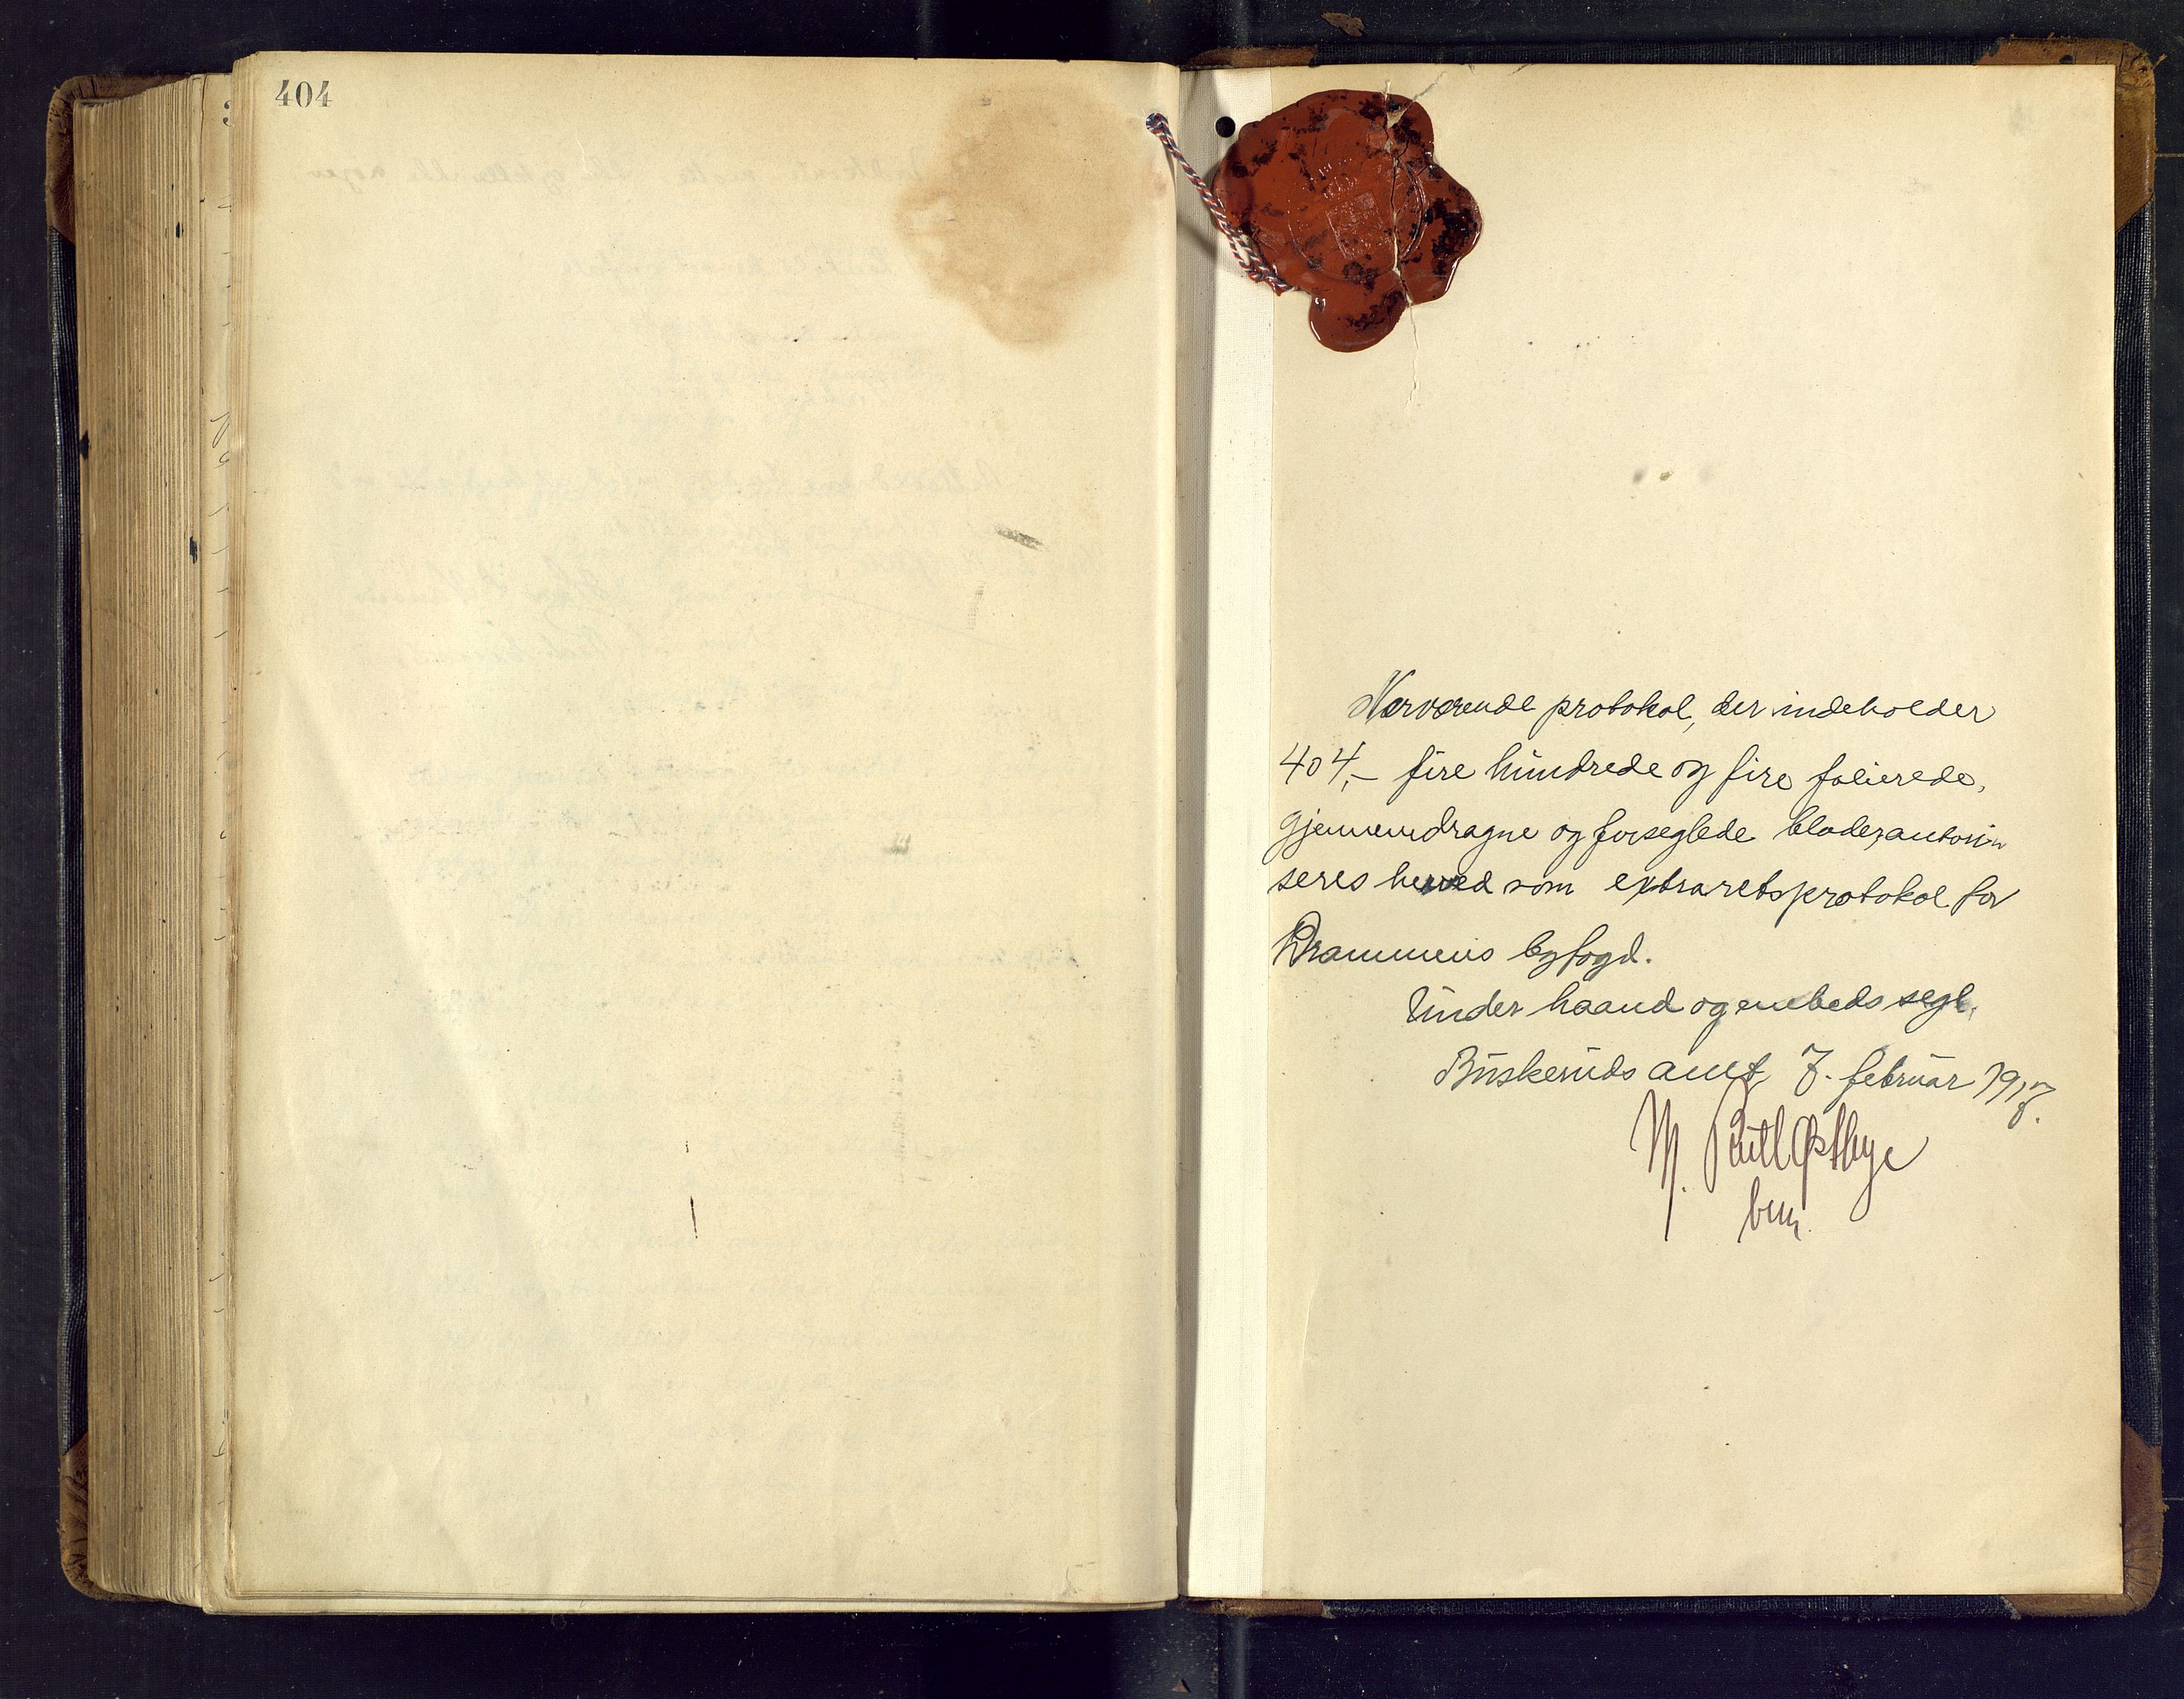 404
Nærværende protokol, der indeholder
404,- fire hundrede og fire folierede,
gjennemdragne og forseglede blade, autori-
seres herved som extraretsprotokol for
Drammens byfogd.
Under haand og embeds segl.
Buskeruds amt, 7. februar 1917.